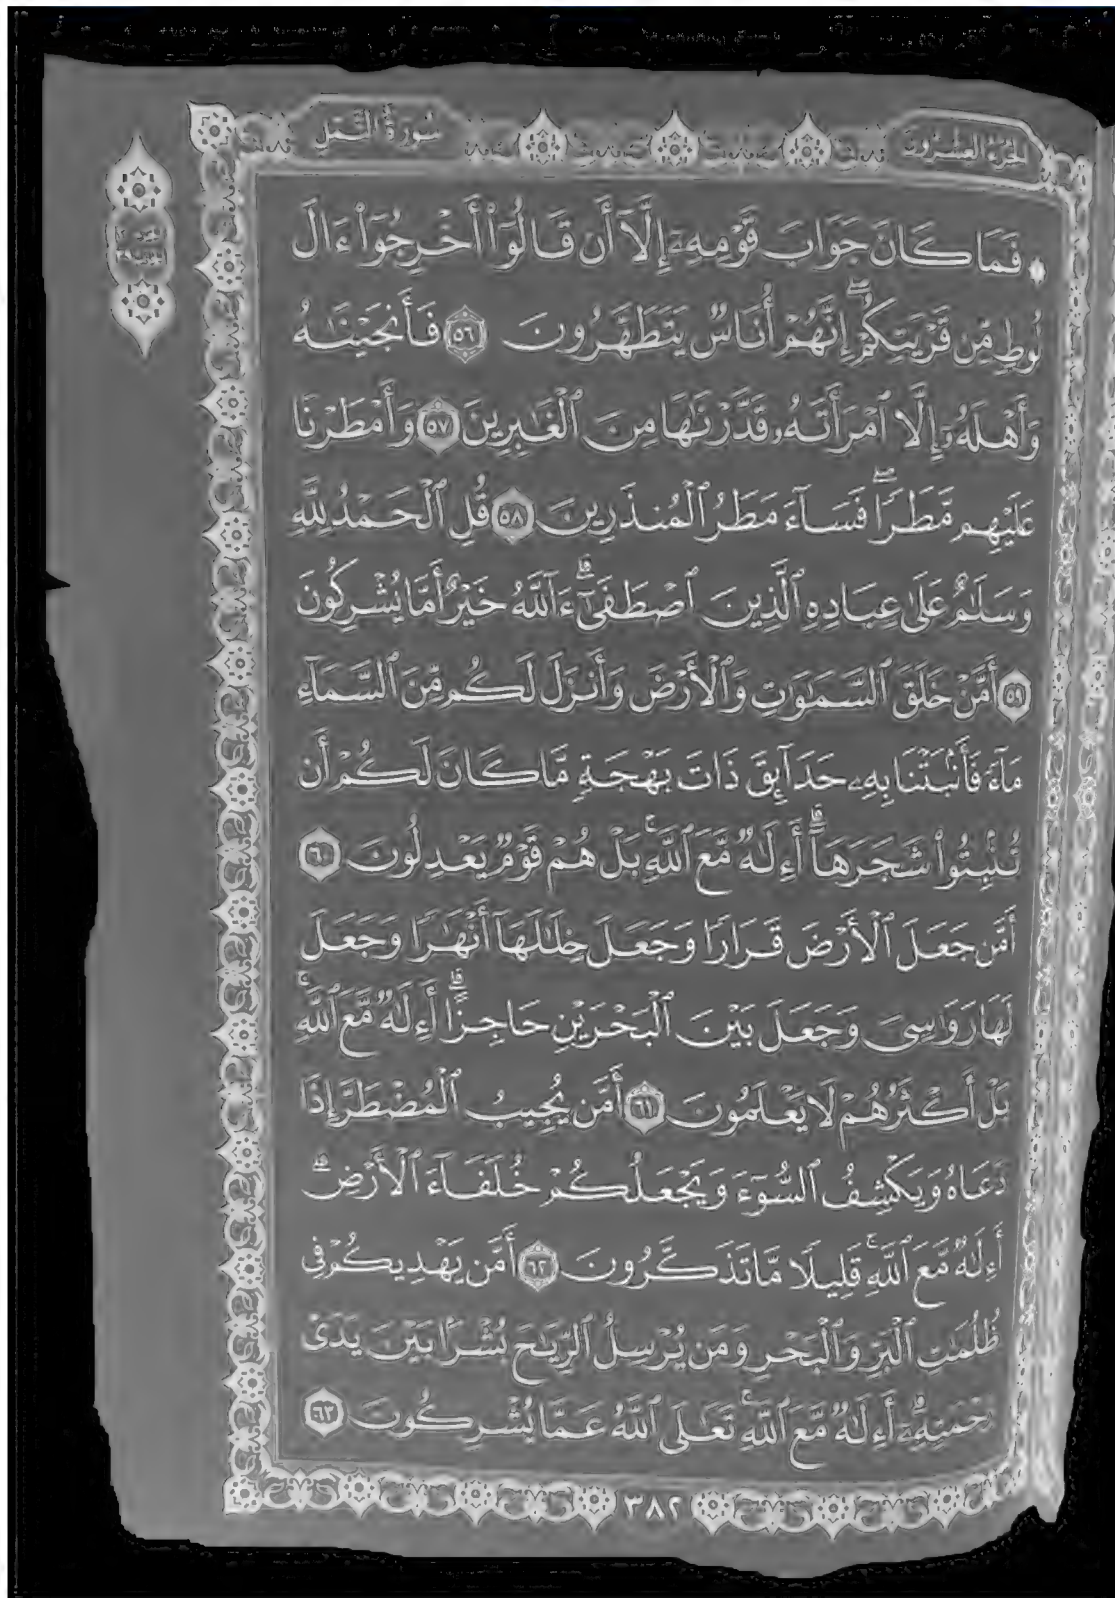 الجزء العشرون
سورة النمل
۞ فَمَا كَانَ جَوَابَ قَوْمِهِۦٓ إِلَّآ أَن قَالُوٓا۟ أَخْرِجُوٓا۟ ءَالَ
لُوطٍ مِّن قَرْيَتِكُمْ ۖ إِنَّهُمْ أُنَاسٌ يَتَطَهَّرُونَ ٥٦ فَأَنجَيْنَٰهُ
وَأَهْلَهُۥٓ إِلَّا ٱمْرَأَتَهُۥ قَدَّرْنَٰهَا مِنَ ٱلْغَٰبِرِينَ ٥٧ وَأَمْطَرْنَا
عَلَيْهِم مَّطَرًا ۖ فَسَآءَ مَطَرُ ٱلْمُنذَرِينَ ٥٨ قُلِ ٱلْحَمْدُ لِلَّهِ
وَسَلَٰمٌ عَلَىٰ عِبَادِهِ ٱلَّذِينَ ٱصْطَفَىٰٓ ۗ ءَآللَّهُ خَيْرٌ أَمَّا يُشْرِكُونَ
٥٩ أَمَّنْ خَلَقَ ٱلسَّمَٰوَٰتِ وَٱلْأَرْضَ وَأَنزَلَ لَكُم مِّنَ ٱلسَّمَآءِ
مَآءً فَأَنۢبَتْنَا بِهِۦ حَدَآئِقَ ذَاتَ بَهْجَةٍ مَّا كَانَ لَكُمْ أَن
تُنۢبِتُوا۟ شَجَرَهَآ ۗ أَءِلَٰهٌ مَّعَ ٱللَّهِ ۚ بَلْ هُمْ قَوْمٌ يَعْدِلُونَ ٦٠
أَمَّن جَعَلَ ٱلْأَرْضَ قَرَارًا وَجَعَلَ خِلَٰلَهَآ أَنْهَٰرًا وَجَعَلَ
لَهَا رَوَٰسِىَ وَجَعَلَ بَيْنَ ٱلْبَحْرَيْنِ حَاجِزًا ۗ أَءِلَٰهٌ مَّعَ ٱللَّهِ ۚ
بَلْ أَكْثَرُهُمْ لَا يَعْلَمُونَ ٦١ أَمَّن يُجِيبُ ٱلْمُضْطَرَّ إِذَا
دَعَاهُ وَيَكْشِفُ ٱلسُّوٓءَ وَيَجْعَلُكُمْ خُلَفَآءَ ٱلْأَرْضِ ۗ
أَءِلَٰهٌ مَّعَ ٱللَّهِ ۚ قَلِيلًا مَّا تَذَكَّرُونَ ٦٢ أَمَّن يَهْدِيكُمْ فِى
ظُلُمَٰتِ ٱلْبَرِّ وَٱلْبَحْرِ وَمَن يُرْسِلُ ٱلرِّيَٰحَ بُشْرًۢا بَيْنَ يَدَىْ
رَحْمَتِهِۦٓ ۗ أَءِلَٰهٌ مَّعَ ٱللَّهِ ۚ تَعَٰلَى ٱللَّهُ عَمَّا يُشْرِكُونَ ٦٣
٣٨٢